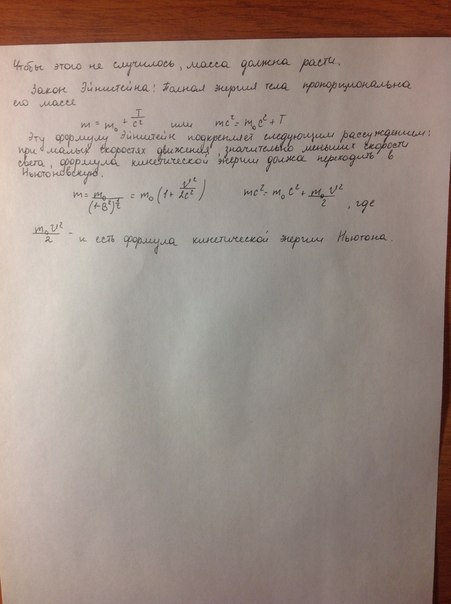 Чтобы этого не случилось, масса должна расти.
Закон Эйнштейна: Полная энергия тела пропорциональна
его массе
m = m₀ + T/c² или mc² = m₀c² + T
Эту формулу Эйнштейн подкрепляет следующим рассуждением:
при малых скоростях движения, значительно меньших скорости
света, формула кинетической энергии должа переходить в
Ньютоновскую.
m = m₀/(1-B²)^½ = m₀(1 + V²/2c²) mc² = m₀c² + m₀V²/2, где
m₀V²/2 - и есть формула кинетической энергии Ньютона.